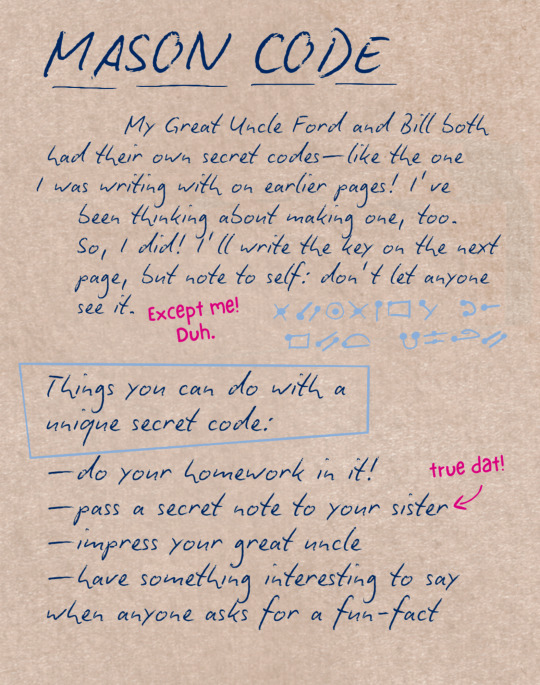 MASON CODE
My Great Uncle Ford and Bill both
had their own secret codes—like the one
I was writing with on earlier pages! I've
been thinking about making one, too.
So, I did! I'll write the key on the next
page, but note to self: don't let anyone
see it.
Except me!
Duh.
Things you can do with a
unique secret code:
—do your homework in it!
true dat!
—pass a secret note to your sister
—impress your great uncle
—have something interesting to say
when anyone asks for a fun-fact